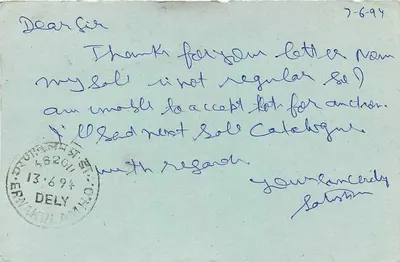 7-6-94
Dear Sir
Thanks for your letter Now
my sale is not regular so I
am unable to accept lots for auction.
I'll send next Sale Catalogue.
with regards.
Yours sincerely
682011
13·6·94
DELY
ERNAKULAM H.O.